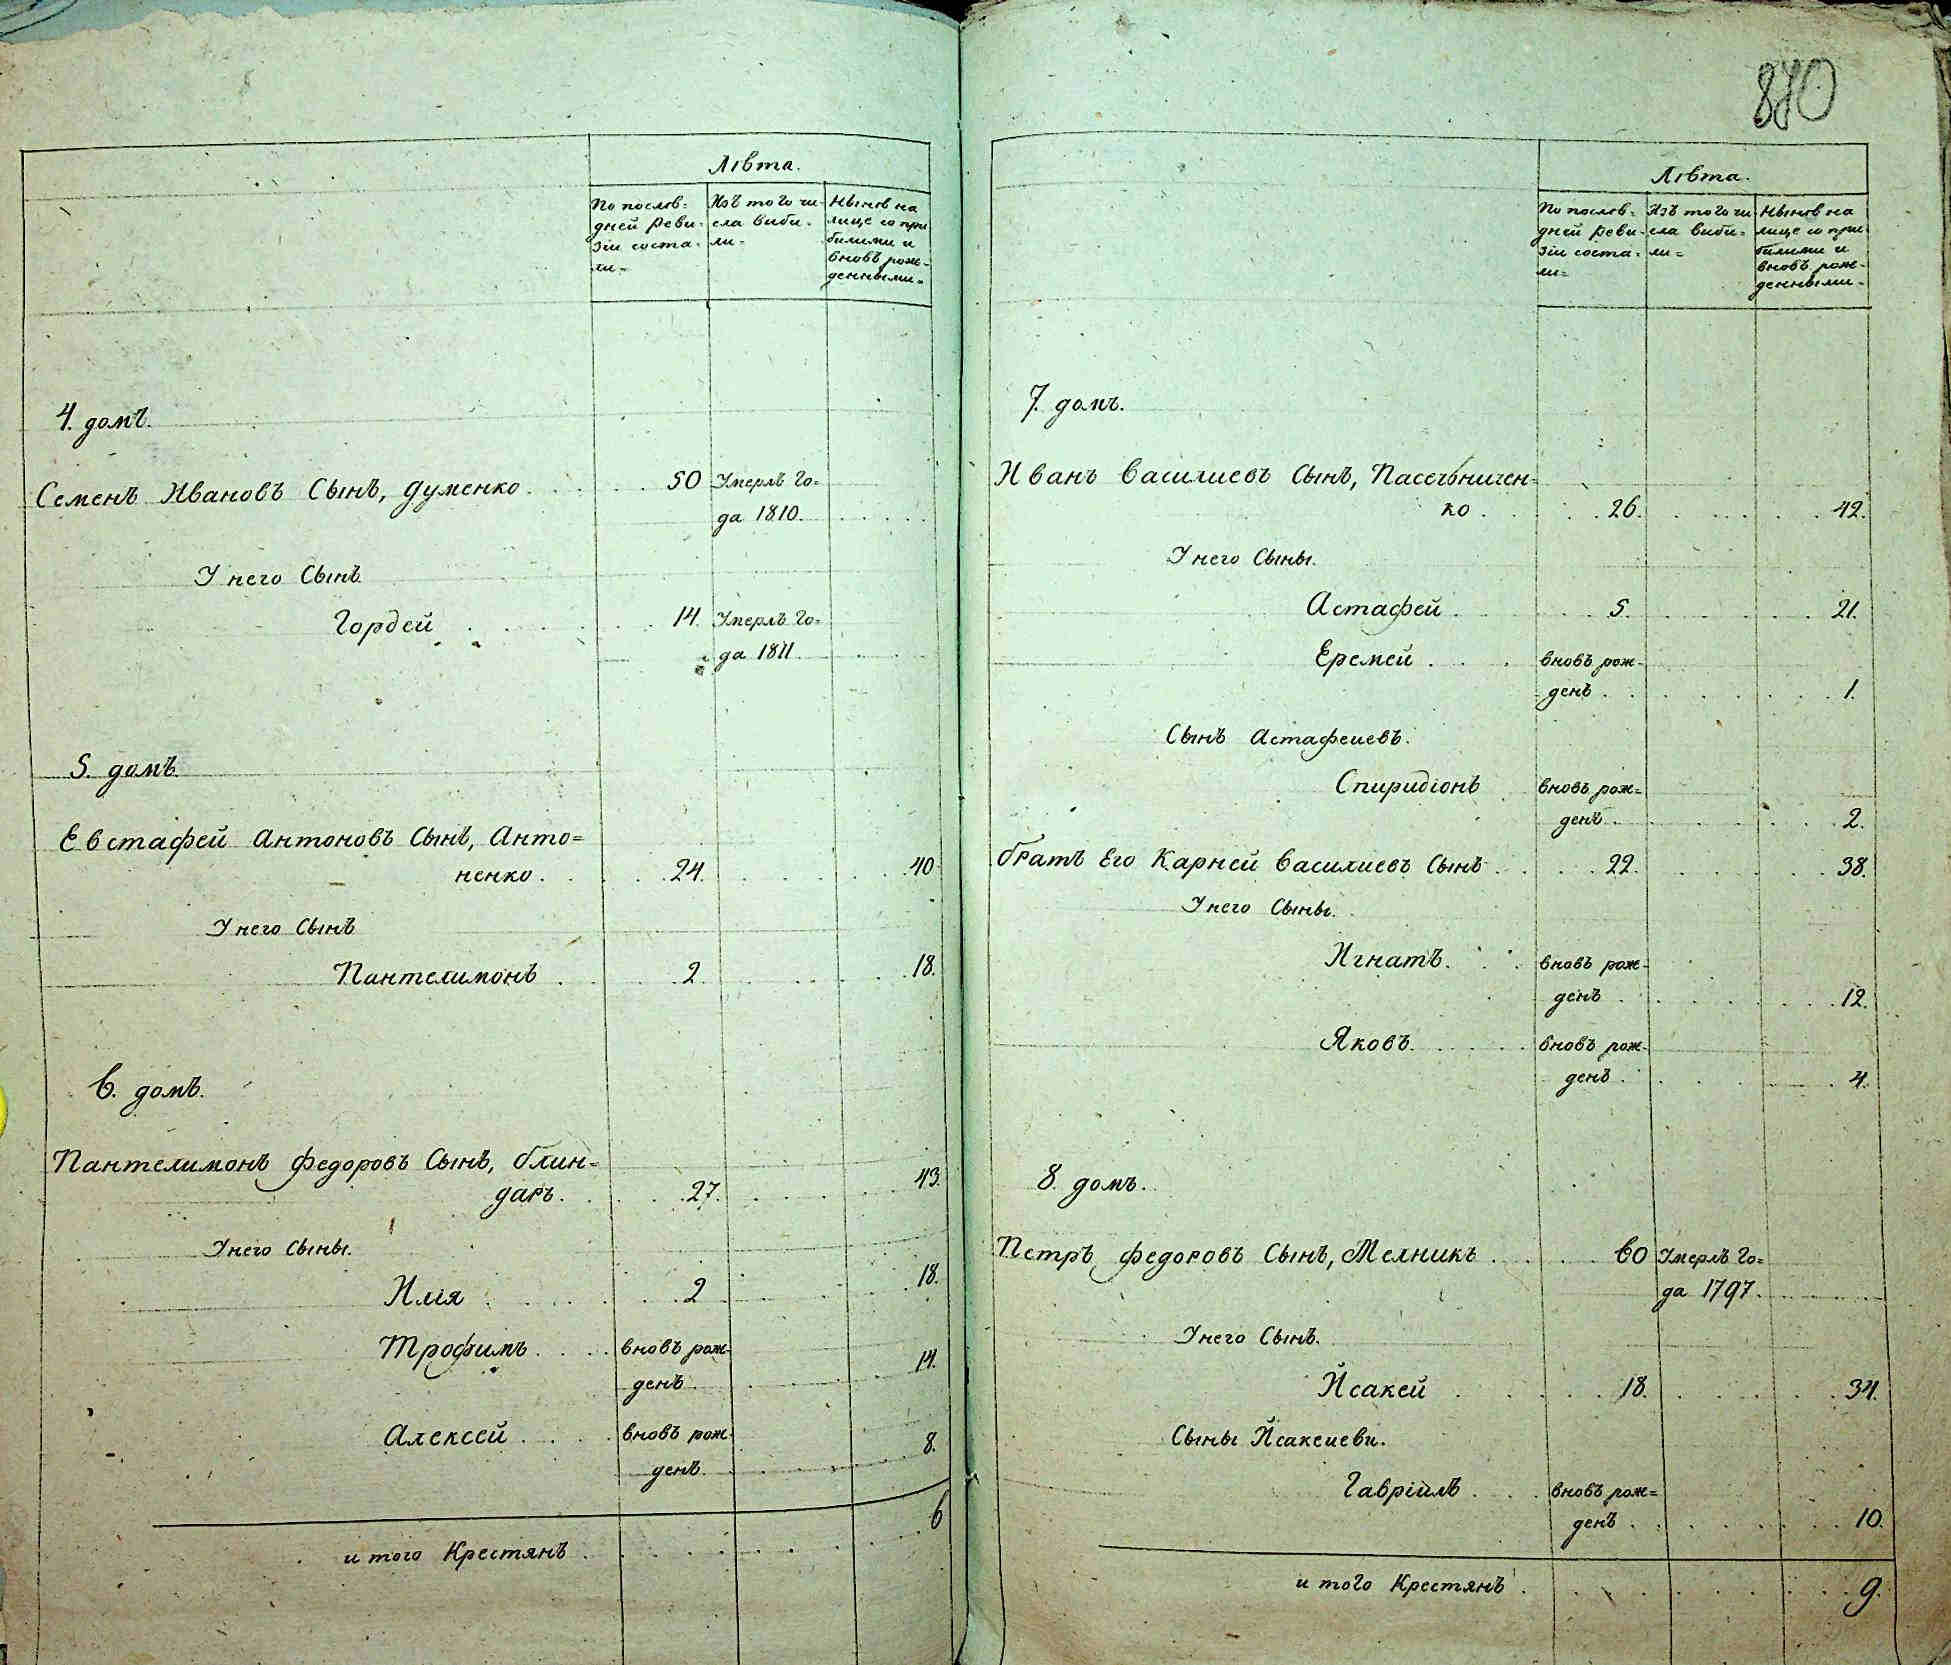 Лѣта.
По послѣ= Изъ того чи- Нынѣ на
дней реви- сла выбы- лице со при
зіи соста- ли- былыми и
ли= вновь рож-
денными=
4. домъ.
Семенъ Ивановъ Сынъ, Думенко . . . . . 50 Умерлъ Го=
да 1810. . . . .
У него Сынъ
Гордей . . . . . 14. Умерлъ Го=
да 1811 . . .
5. домъ.
Евстафей Антоновъ Сынъ, Анто=
ненко . . . . 24. . . . . 40.
У него Сынъ
Пантелимонъ . . . . 2 . . . . . 18.
6. домъ.
Пантелимонъ Федоровъ Сынъ, блин=
даръ. . . . . 27. . . . . 43.
У него Сыны.
Илія . . . . . 2 . . . . 18.
Трофимъ . . . . вновь рож-
денъ . . . . 14.
Алексей . . . . вновь рож-
денъ . . . . 8.
и того Крестянъ . . . . . . 6
870
Лѣта.
По послѣ= Изъ того чи- Нынѣ на
дней реви- сла выбы= лице со при
зіи соста- ли= былыми и
ли= вновь рож-
денными-
7. домъ.
Иванъ Василиевъ Сынъ, Пасечниченъ=
ко . . . . 26. . . . . 42.
У него Сыны.
Астафей . . . . 5. . . . . 21.
Еремей . . . вновь рож-
денъ . . . . . 1.
Сынъ Астафеиевъ.
Спиридіонъ вновь рож=
денъ . . . . . 2.
братъ Его Карней Василиевъ Сынъ . . . . 22. . . . . 38.
У него Сыны.
Игнатъ. . . вновь рож-
денъ . . . . . 12.
Яковъ. . . . вновь рож-
денъ . . . . . 4.
8. домъ.
Петръ Федоровъ Сынъ, Мелникъ . . . . 60 Умерлъ Го=
да 1797. . . . .
У него Сынъ.
Исакей . . . . . 18. . . . . 34.
Сыны Исакеиеви.
Гавріилъ . . . вновь рож=
денъ . . . . . 10.
и того Крестянъ . . . . . . 9.